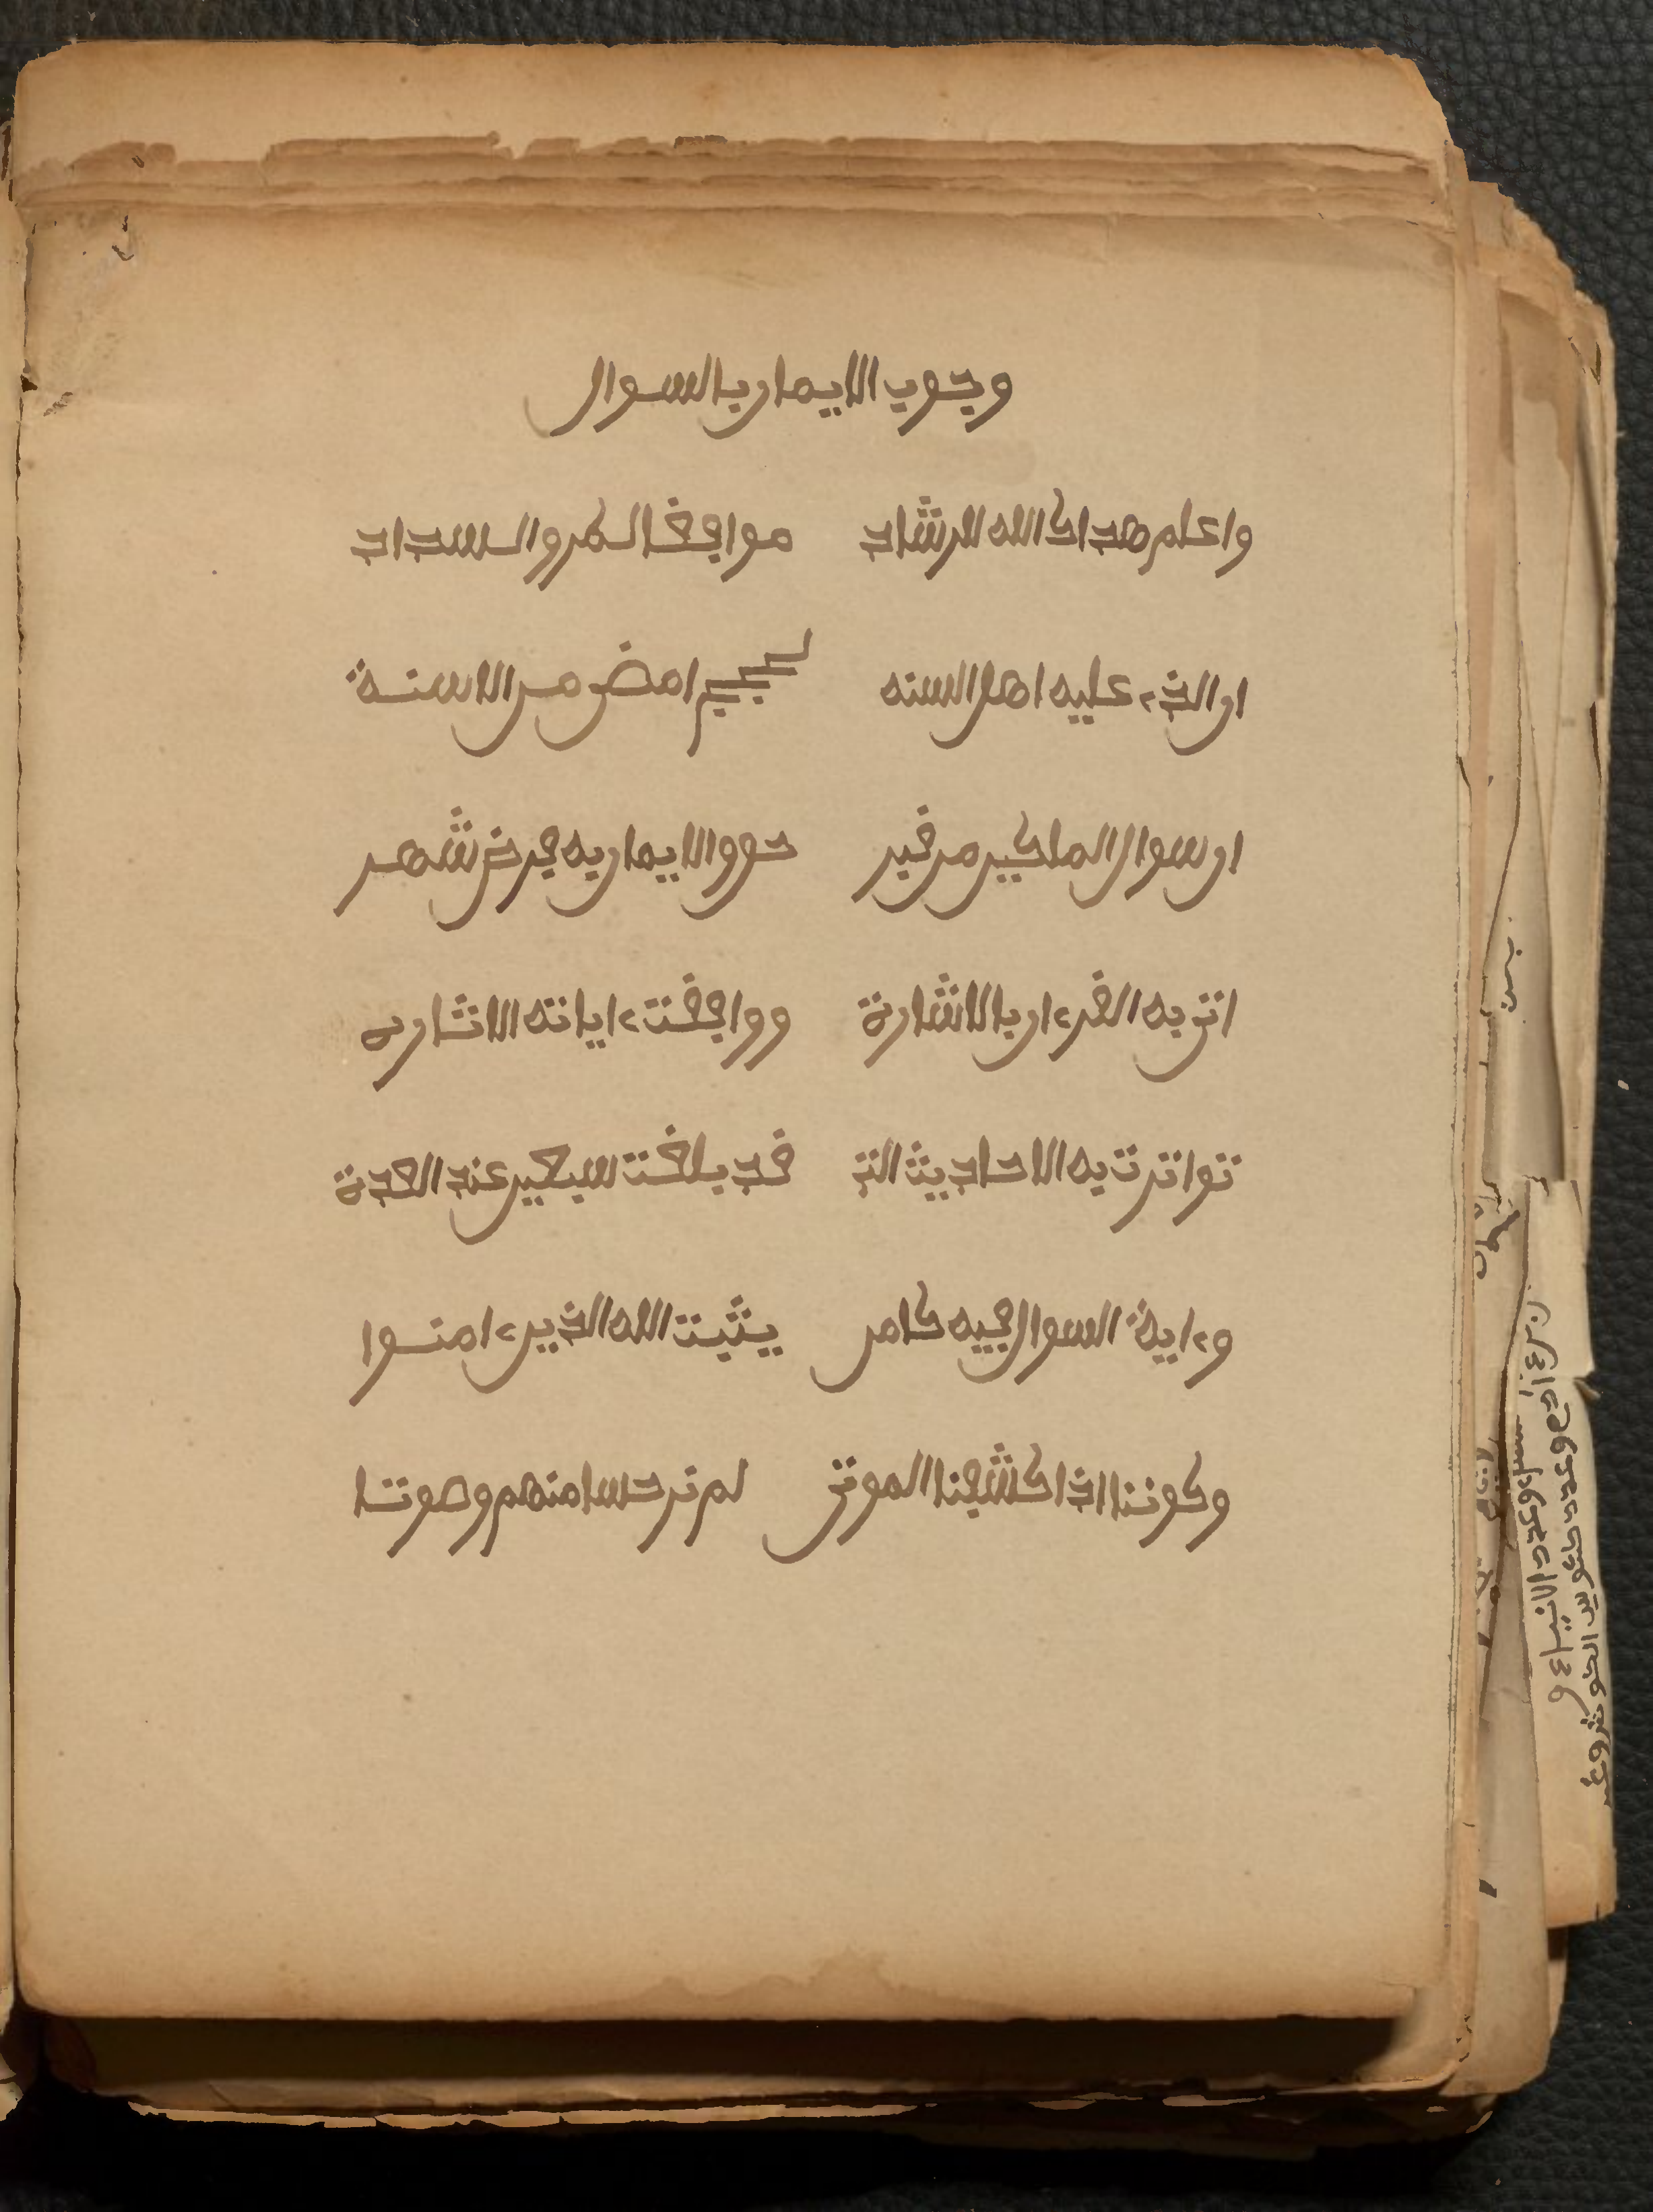 وجوب الايمان بالسوال
واعلم هداك الله للرشاد موافقا للحق والسداد
ان الذي عليه اهل السنه بحجج امضى من الاسنة
ان سوال الملكين من قبر حق والايمان به فرض شهر
اتى به القرءان بالاشارة ووافقت ءاياته الاثاره
تواترت به الاحاديث التي قد بلغت سبعين عند العدة
وءاية السوال فيه كامن يثبت الله الذين ءامنوا
وكوننا اذا كشفنا الموتى لم نر حسا منهم وصوتا